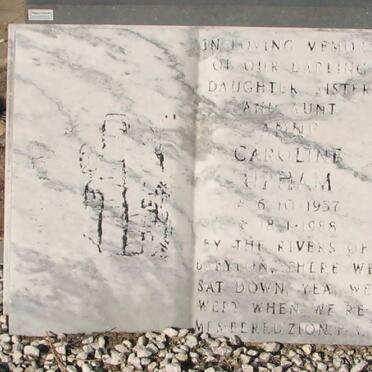 IN LOVING MEMO
OF OUR DARLING
DAUGHTER SISTER
AND AUNT
CAROLINE
6.10.1957
8.1.1988
BY THE RIVERS OF
THERE WE
SAT DOWN, YEA WE
WEPT WHEN WE RE
ZION